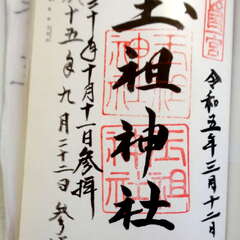 宮
令和五年三月十二日
玉祖神社
玉祖
神社
十年十月十一日参拝
十五年九月二十二日参